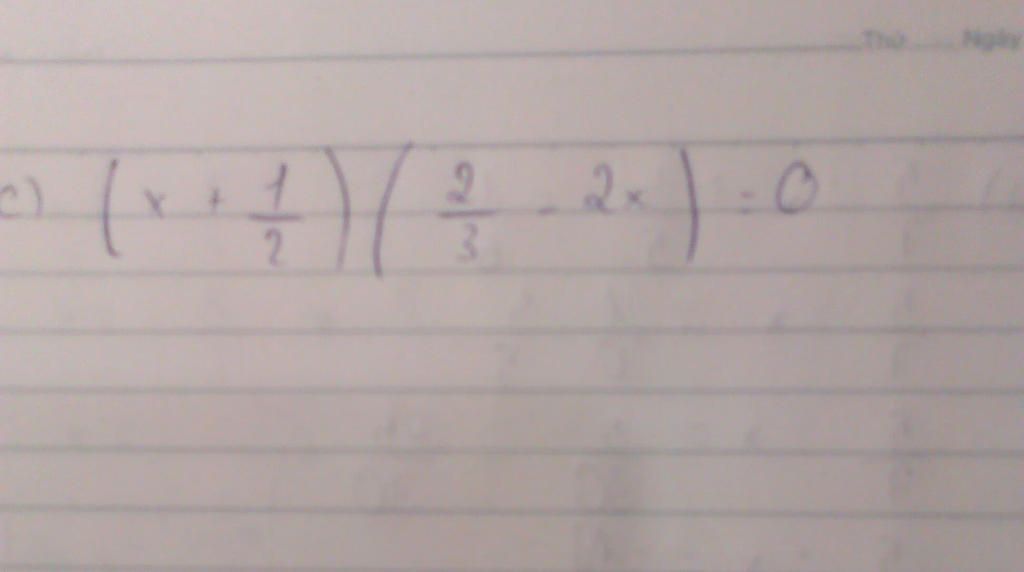 Thứ Ngày
c) (x + 1/2) (2/3 - 2x) = 0